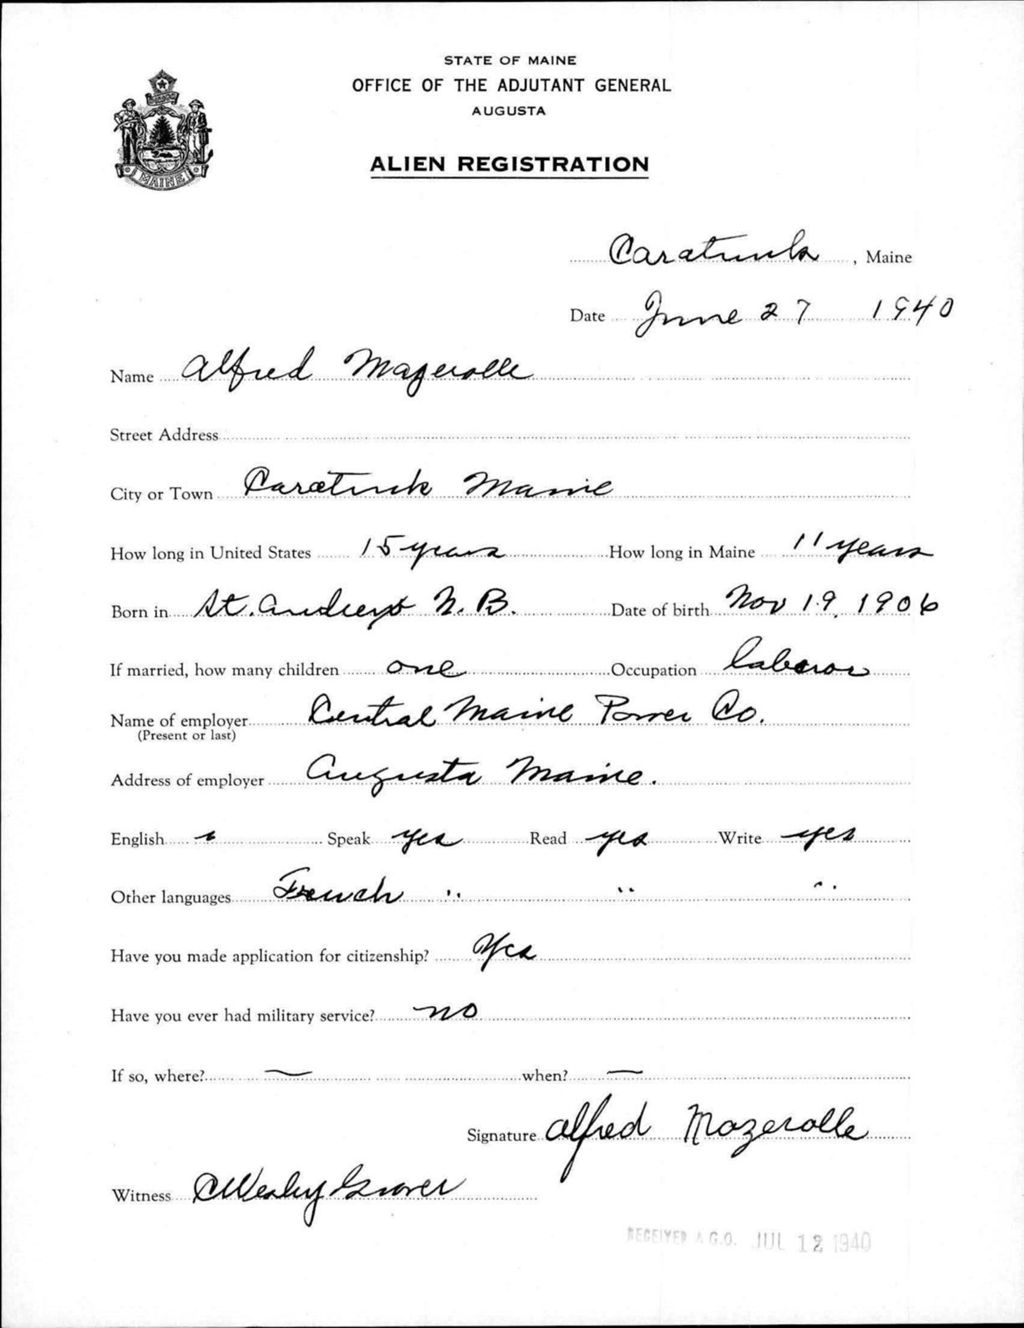 STATE OF MAINE
OFFICE OF THE ADJUTANT GENERAL
AUGUSTA
ALIEN REGISTRATION
MAINE
Caratunk, Maine
Date June 27 1940
Name Alfred Mazerolle
Street Address
City or Town Caratunk Maine
How long in United States 15 years How long in Maine 11 years
Born in St. Andrews N. B. Date of birth Nov 19, 1906
If married, how many children one Occupation laboror
Name of employer Central Maine Power Co.
(Present or last)
Address of employer Augusta Maine.
English Speak yes Read yes Write yes
Other languages French " " "
Have you made application for citizenship? Yes
Have you ever had military service? no
If so, where? — when? —
Signature Alfred Mazerolle
Witness C Wesley Grover
RECEIVED A.G.O. JUL 12 1940